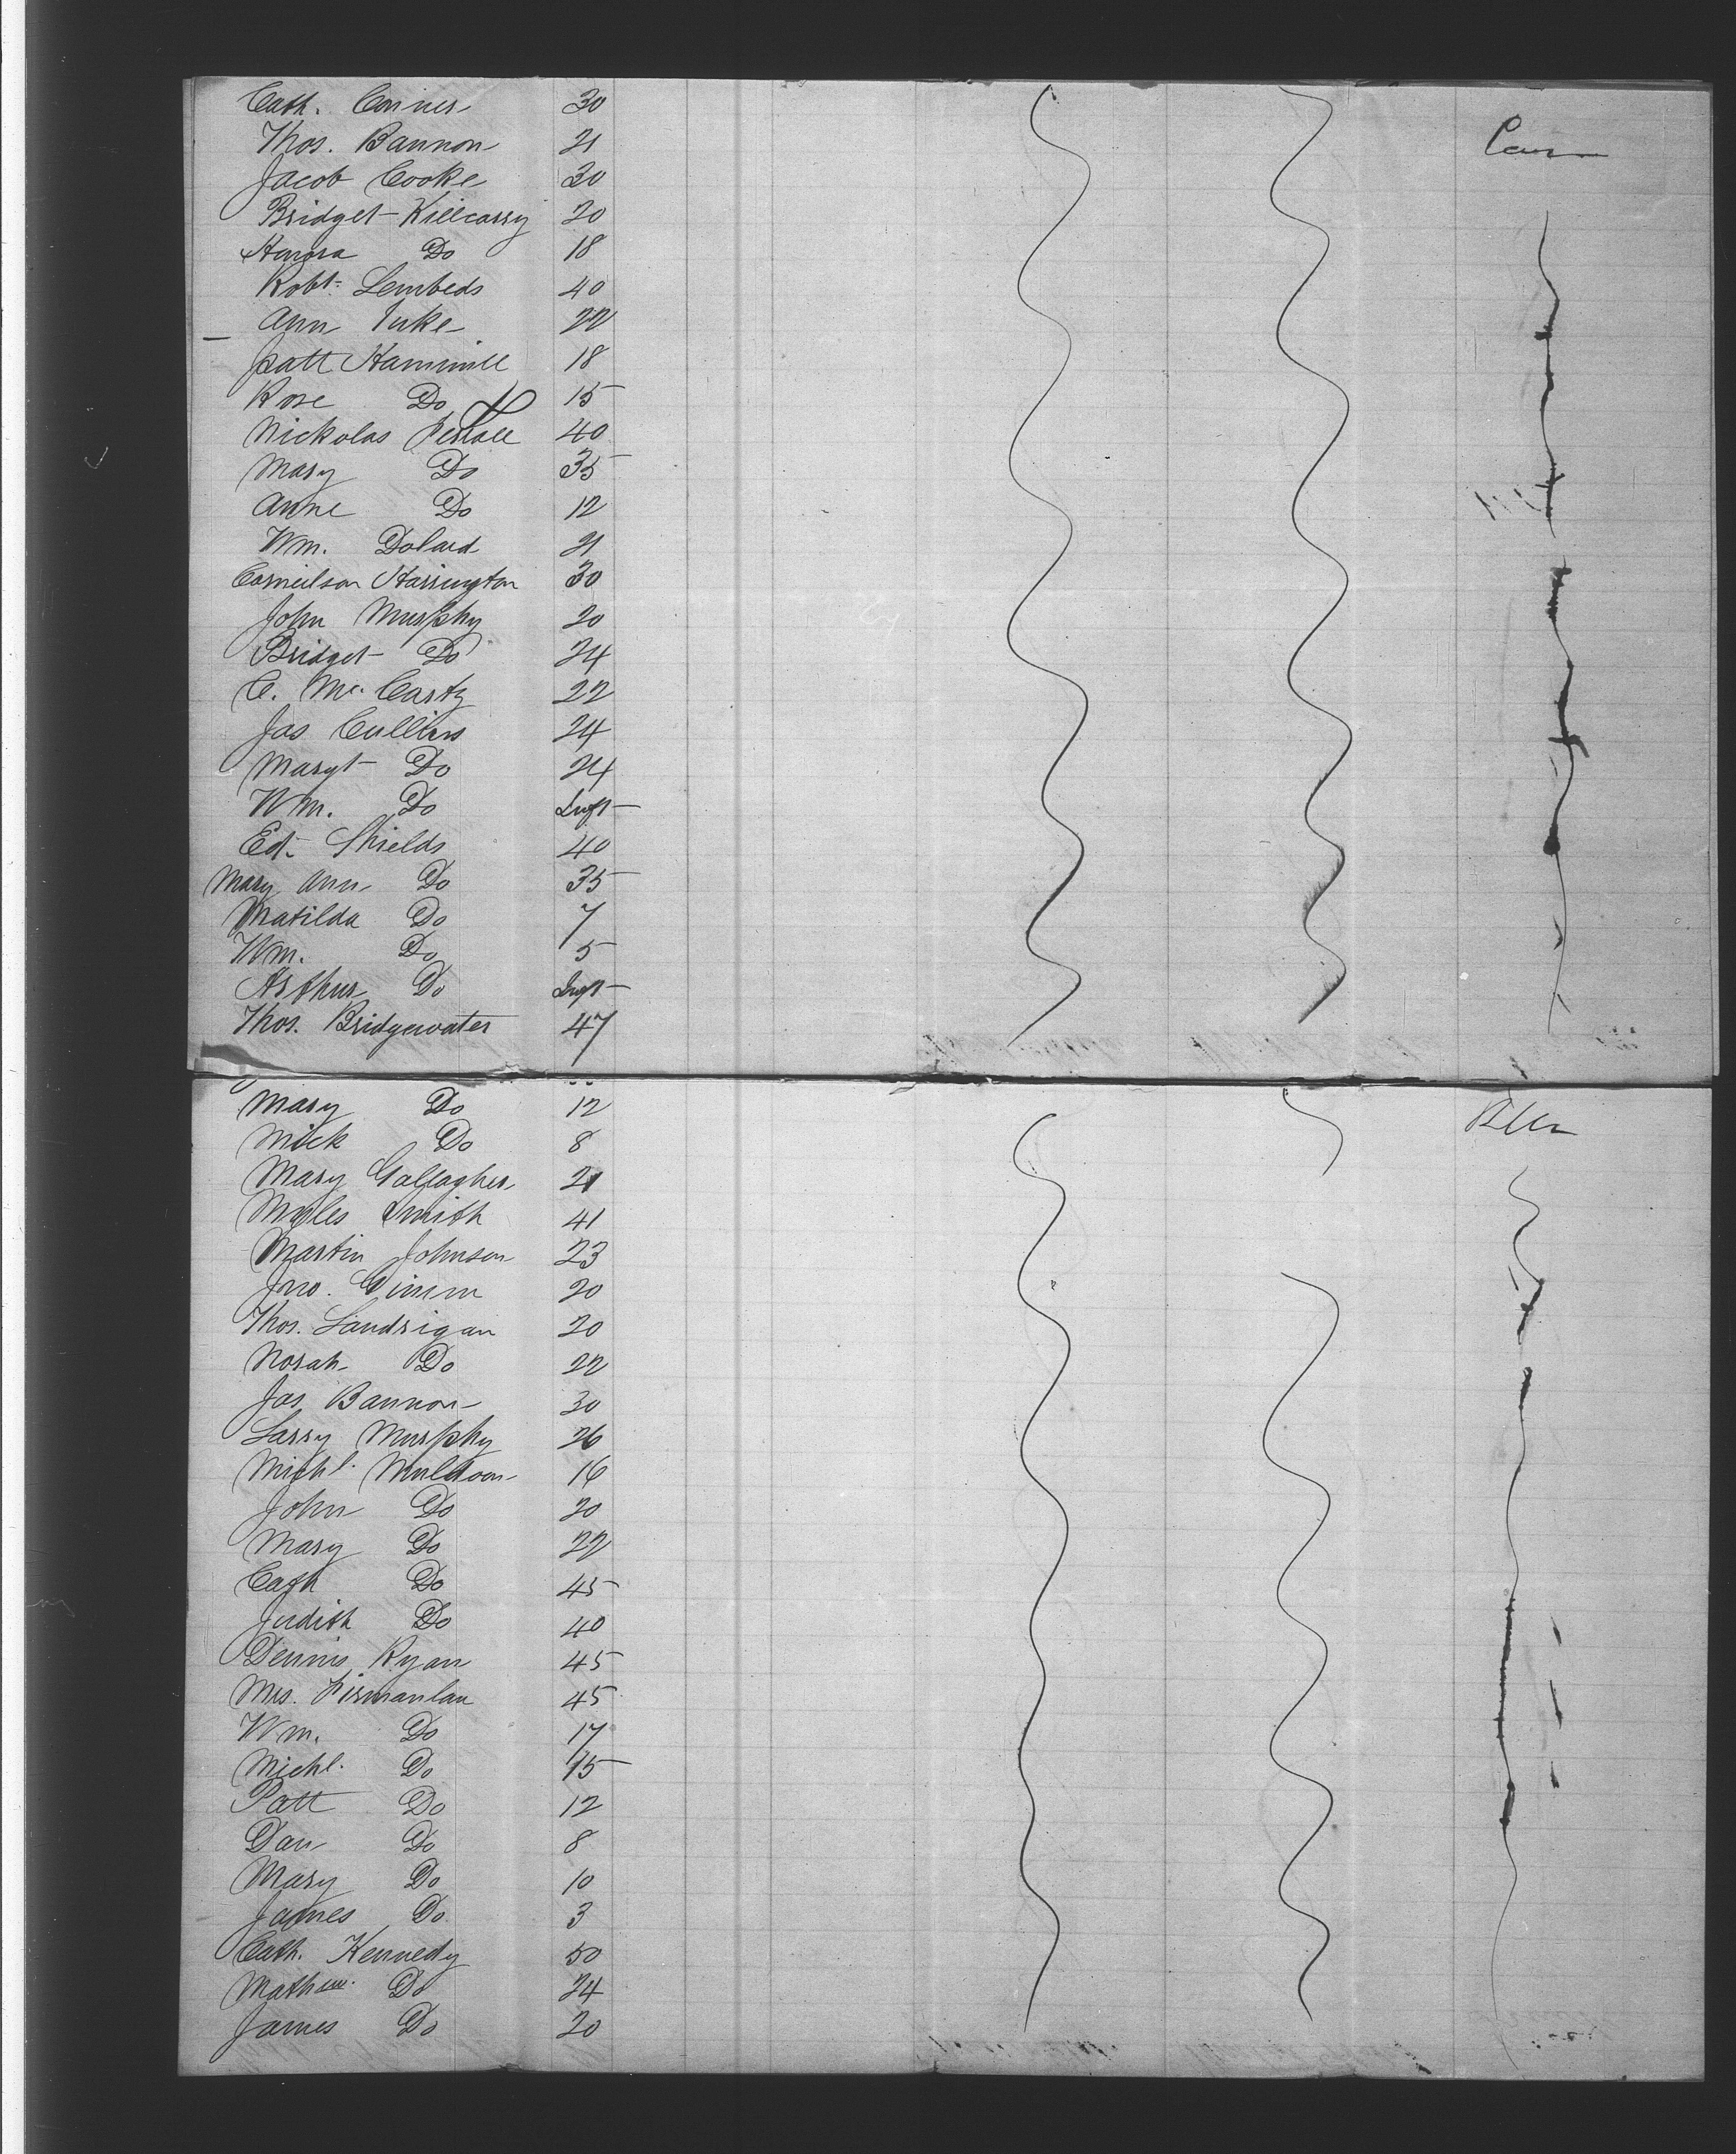 Cath. Conner 30
Thos. Bannon 21
Jacob Cooke 30
Bridget Killcarry 20
Honora Do 18
Robt. Lembeds 40
Ann Tuke 22
Patt Hammill 18
Rose Do 15
Nickolas 40
Mary Do 35
Anne Do 12
Wm. Dolard 21
Corneilson Harrington 30
John Murphy 20
Bridget Do 24
C. Mc. Carty 22
Jas Cullins 24
Margt Do 24
Wm. Do Inft
Ed. Shields 40
Mary Ann Do 35
Matilda Do 7
Wm. Do 5
Arthur Do Inft
Thos. Bridgewater 47
Mary Do 12
Mick Do 8
Mary Gallagher 21
Myles Smith 41
Martin Johnson 23
Jno. Gimm 20
Thos. Landrigan 20
Norah Do 22
Jas Bannon 30
Larry Murphy 26
Michl. Muldoon 16
John Do 20
Mary Do 22
Cath Do 45
Judith Do 40
Dennis Ryan 45
Mrs. Firmanlan 45
Wm. Do 17
Michl. Do 15
Patt Do 12
Dan Do 8
Mary Do 10
James Do 3
Cath. Kennedy 50
Mathew Do 24
James Do 20